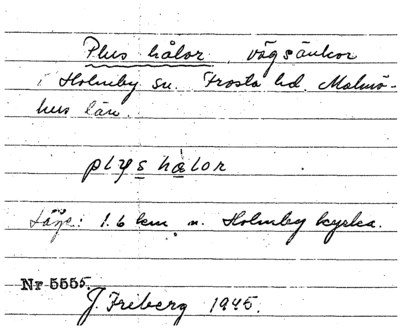 Plus hålor, vägsänkor
i Holmby sn. Frosta hd. Malmö-
hus län.
plys hålor
Läge: 1.6 km n. Holmby kyrka.
Nr 5555.
J. Friberg 1945.